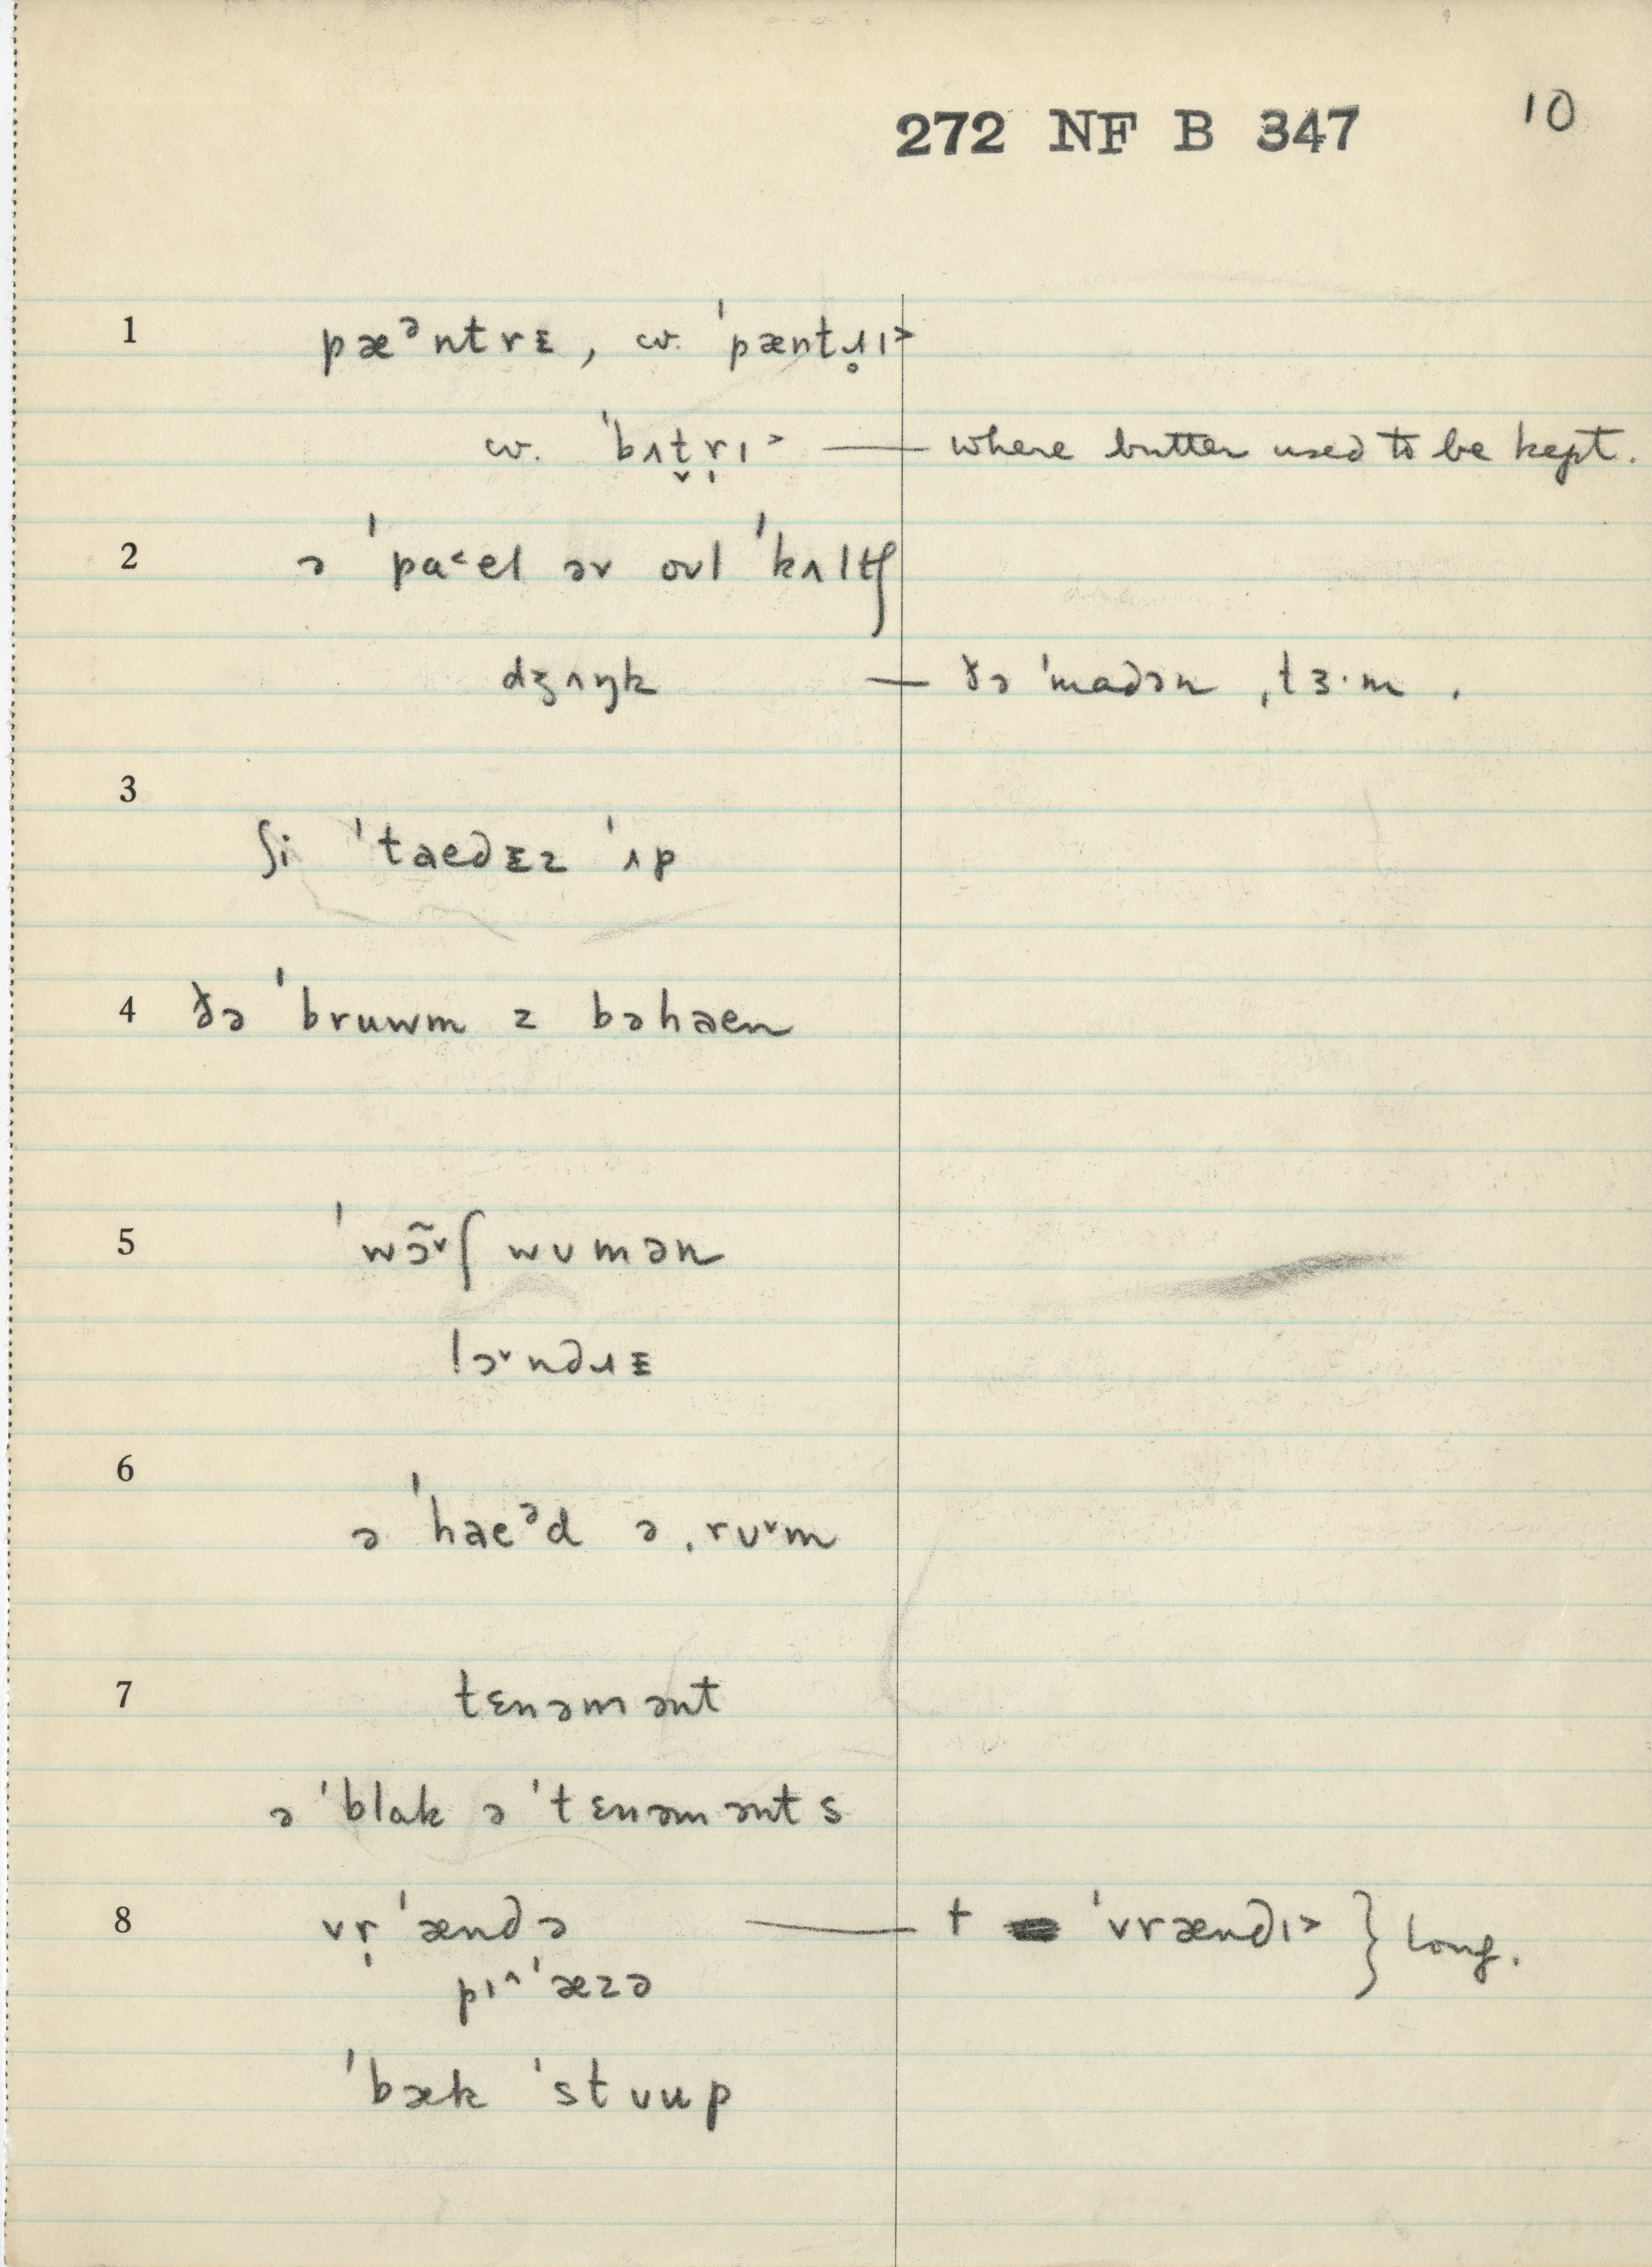 272 NF B 347 10
1 pæᵊntrᴇ, cv. ˈpæntɹ̥ɪ˃
cv. ˈbʌt̬r̩ɪ˃ — where butter used to be kept.
2 ə ˈpa˂el əv oʊl ˈkʌltʃ
dʒʌŋk — ðə ˈmadən ˌtɜ·m .
3
ʃi ˈtaedᴇz ˈʌp
4 ðə ˈbruwm z bəhaen
5 ˈwɔ̃˅ʃ wʊmən
lɔ˅ndɹᴇ
6
ə ˈhaeᵊd ə ˌrʊ˅m
7 tɛnəmənt
ə ˈblak ə ˈtɛnəmənts
8 vr̩ˈændə — † ˈvrændɪ˃ } long.
pɪ˄ˈæzə
ˈbæk ˈstʊup